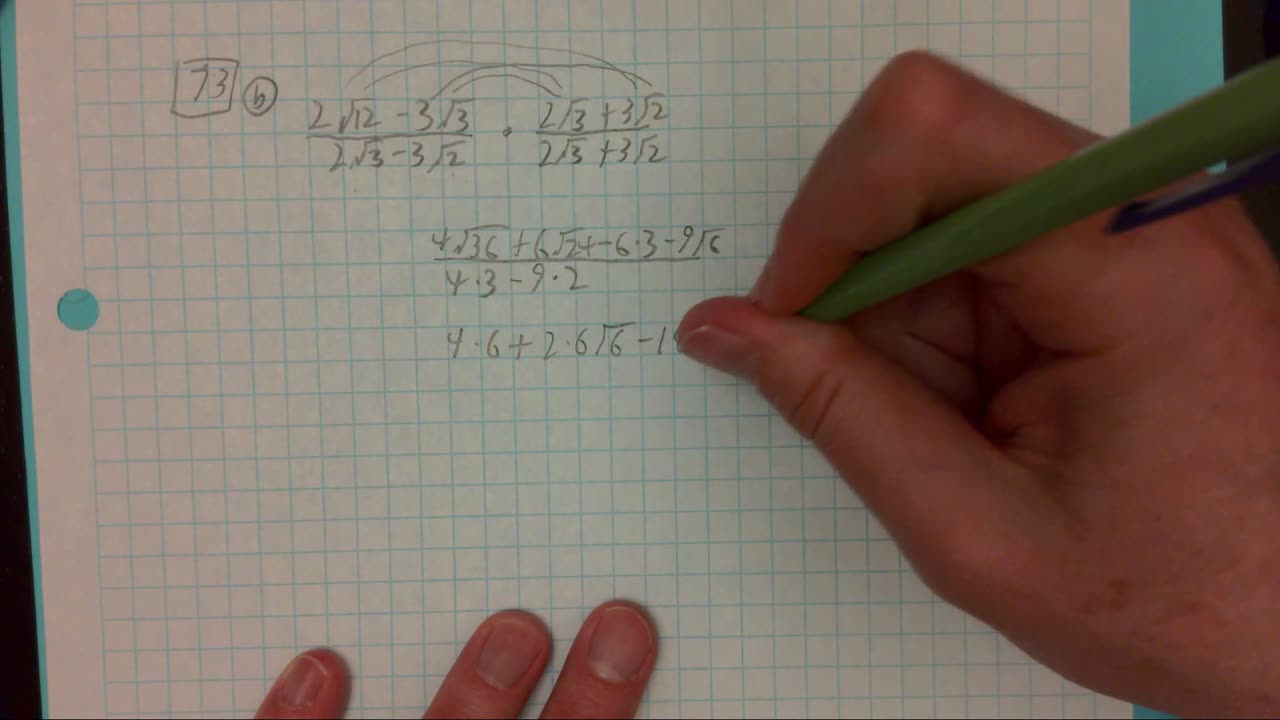 73 b
2√12 - 3√3 / 2√3 - 3√2 · 2√3 + 3√2 / 2√3 + 3√2
4√36 + 6√24 - 6·3 - 9√6
4·3 - 9·2
4·6 + 2·6√6 - 1